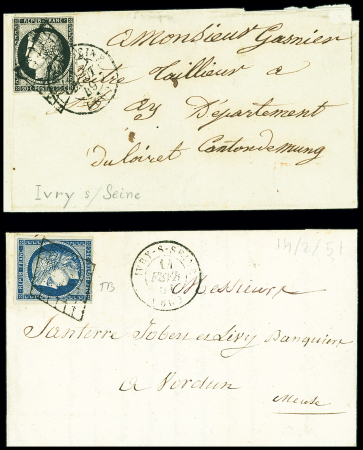 REPUB. FRANC.
a Monsieur Gasnier
Maitre tailleur a
ay Département
du loiret Canton de mung
Ivry s/ Seine
REPUB. FRANC.
IVRY-S-SEINE
14
FEVR
(60)
14/2/51
TB
Messieurs
Santerre Joben et Lévy Banquiers
a Verdun
Meuse